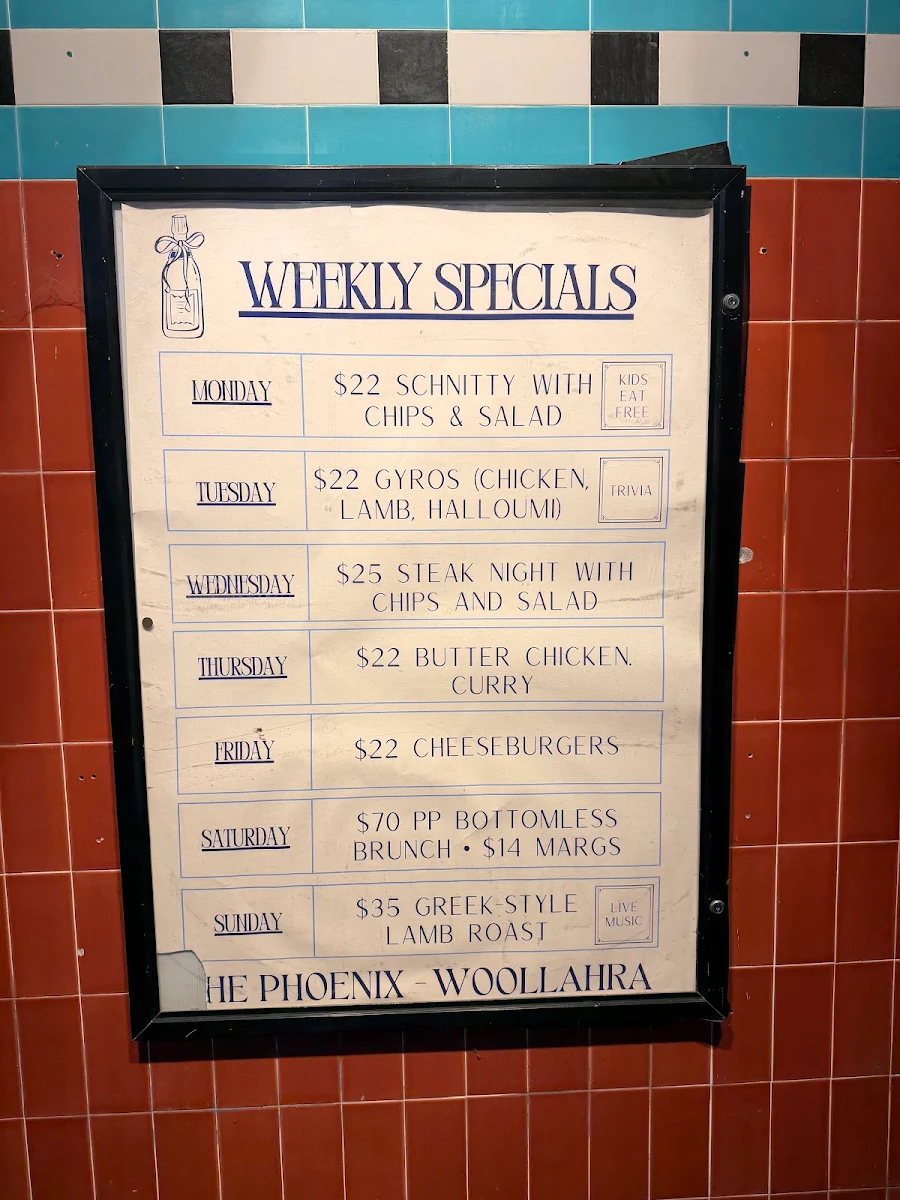 WEEKLY SPECIALS
MONDAY
$22 SCHNITTY WITH
CHIPS & SALAD
KIDS
EAT
FREE
TUESDAY
$22 GYROS (CHICKEN,
LAMB, HALLOUMI)
TRIVIA
WEDNESDAY
$25 STEAK NIGHT WITH
CHIPS AND SALAD
THURSDAY
$22 BUTTER CHICKEN.
CURRY
FRIDAY
$22 CHEESEBURGERS
SATURDAY
$70 PP BOTTOMLESS
BRUNCH • $14 MARGS
SUNDAY
$35 GREEK-STYLE
LAMB ROAST
LIVE
MUSIC
HE PHOENIX - WOOLLAHRA